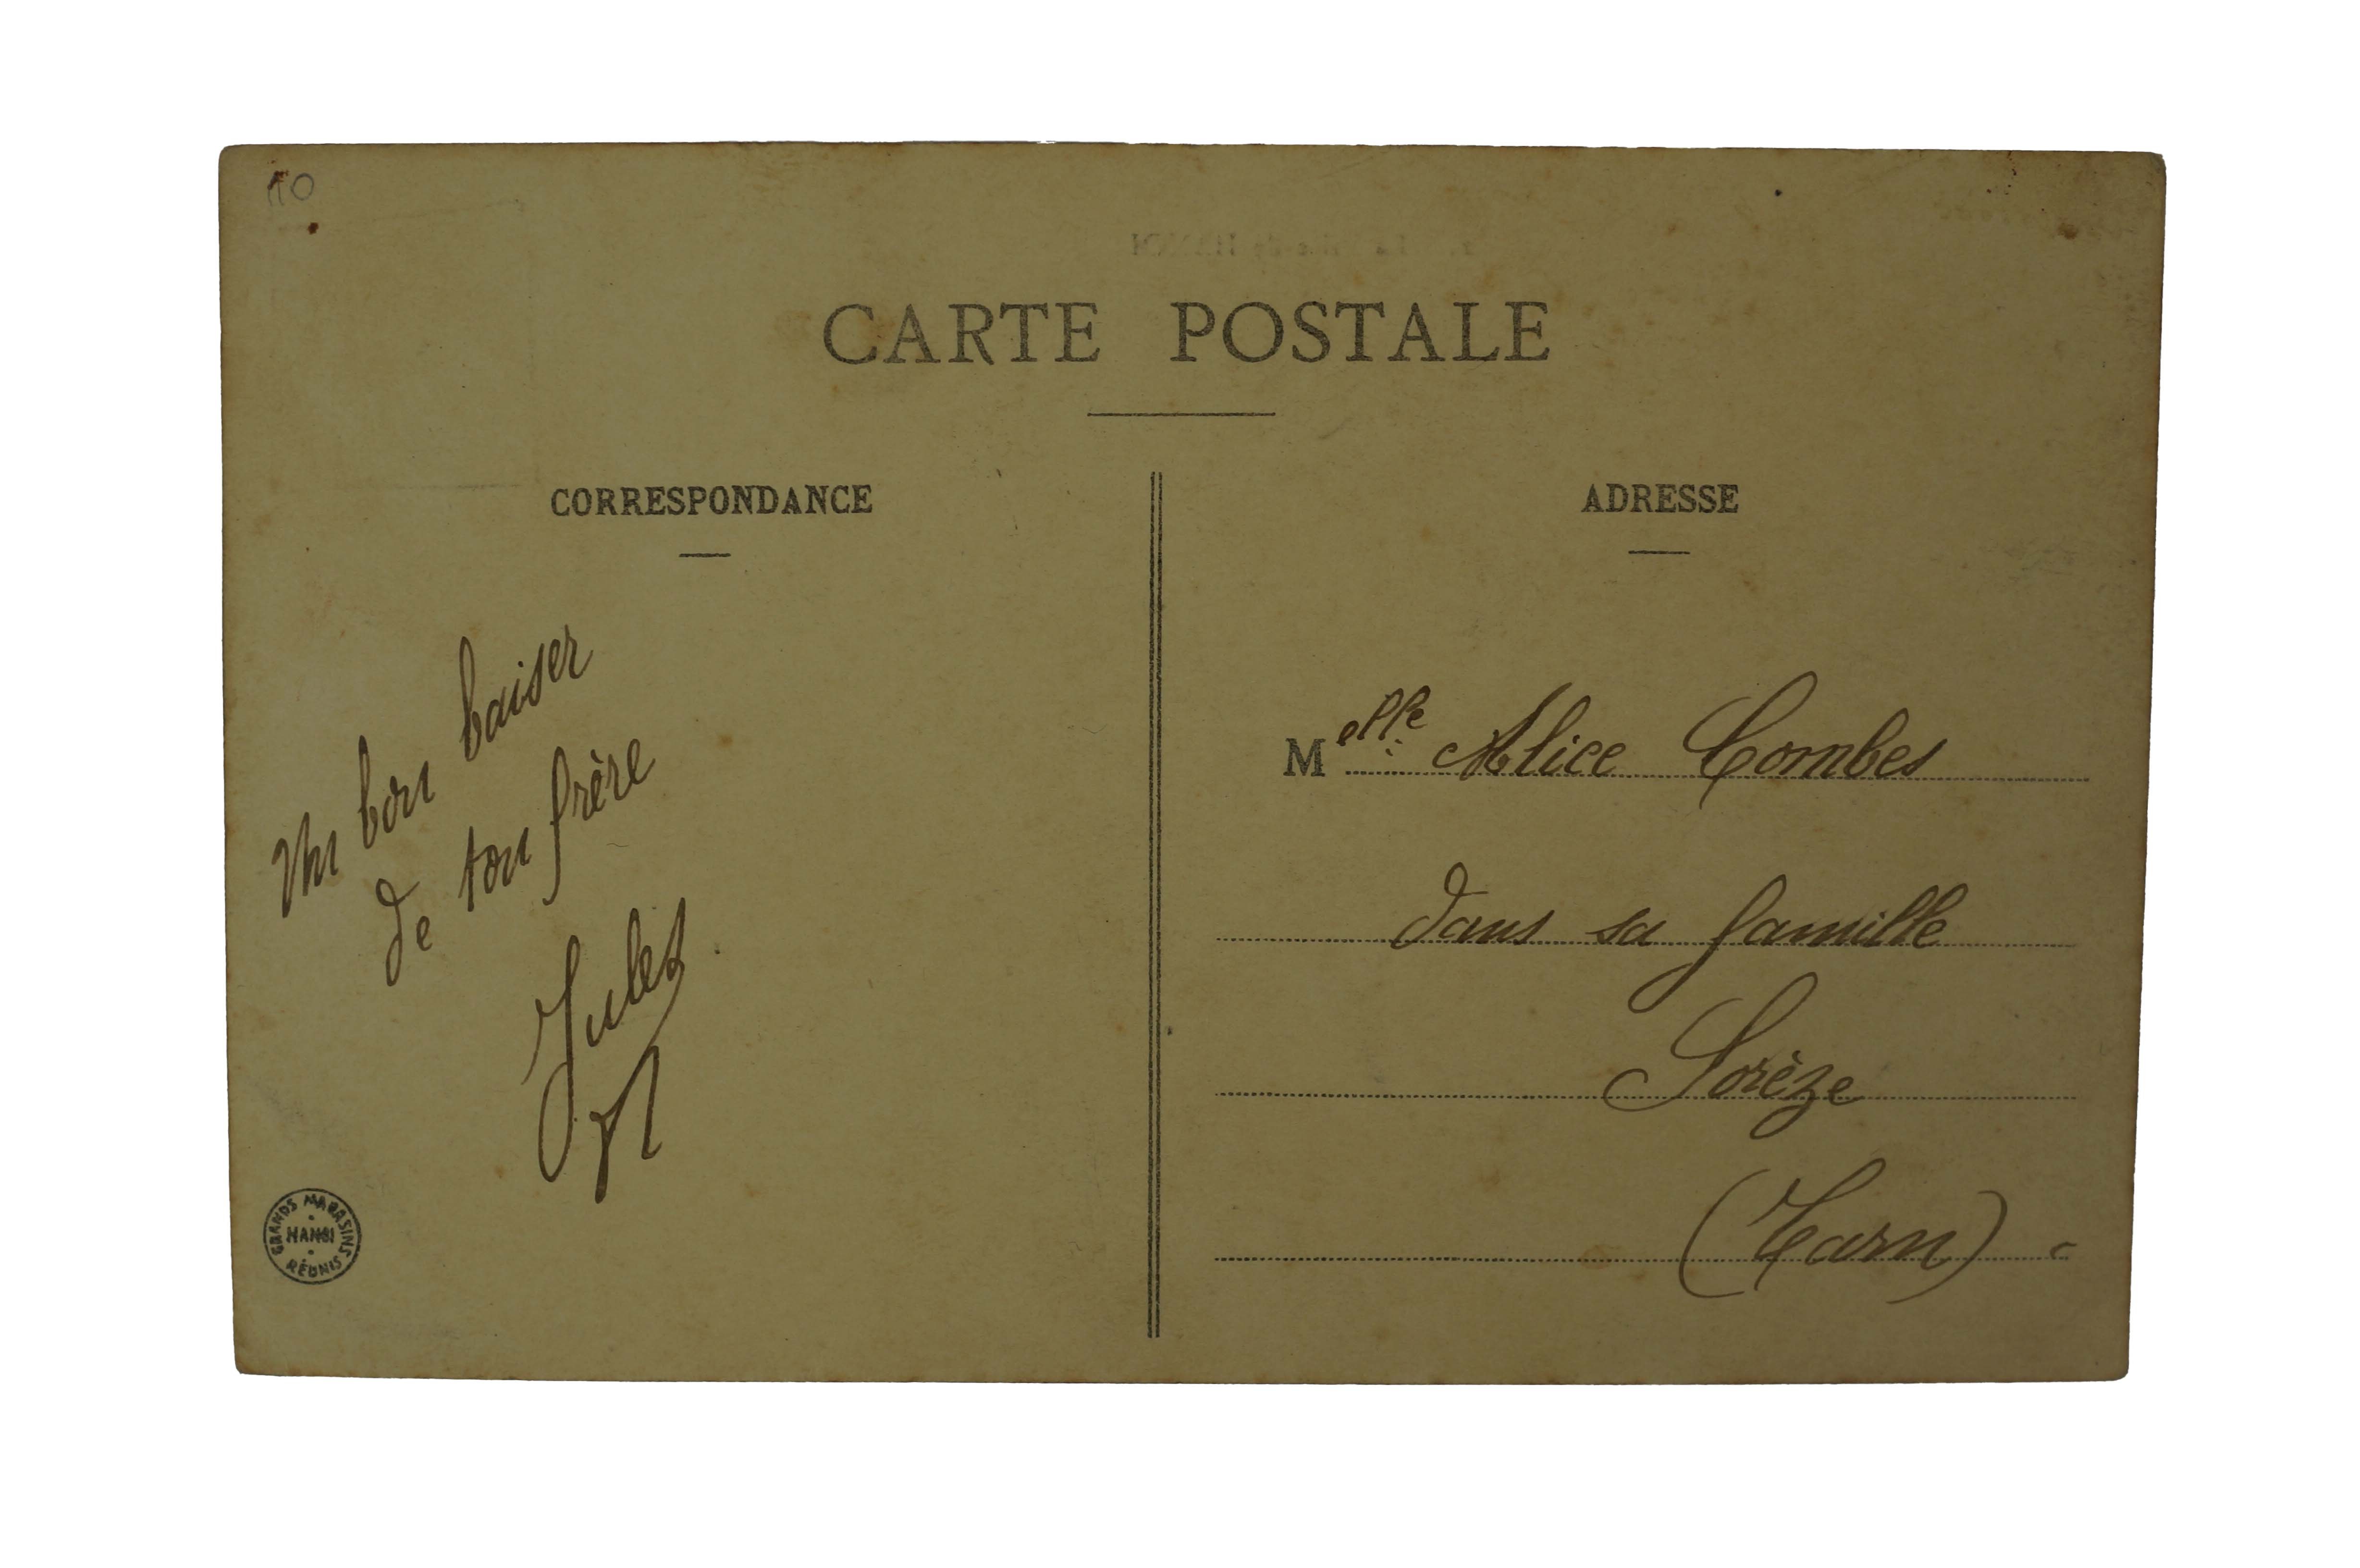 10
CARTE POSTALE
CORRESPONDANCE
Un bon baiser
de ton frère
Jules
GRANDS MAGASINS
HANOI
RÉUNIS
ADRESSE
Melle Alice Combes
dans sa famille
Sorèze
(Tarn)